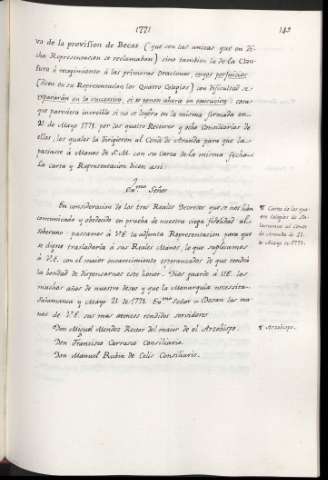 1771
142
va de la provision de Becas (que son las unicas que en di-
cha Representacion se reclamaban) sino tambien la de la Clau-
sura ò recogimiento à las primeras Oraciones, cuyos perjuicios
(dicen en su Representacion los Quatro Colegios) con dificultad se
repararàn en lo succesivo, si se pensase ahora en
que pareciera increible si no se leyera en la misma firmada en
21 de Mayo 1771. por los quatro Rectores y ocho Consiliarios de
ellos, los quales la dirigieron al Conde de Aranda para que la
pasase à Manos de S. M. con su Carta de la misma fecha:
La Carta y Representacion dicen assi:
Exmo. Señor
En consideracion de los tres Reales Decretos que se nos han
comunicado y obedecido en prueba de nuestra ciega fidelidad al
Soberano: pasamos à V.E. la adjunta Representacion para que
se digne trasladarla à sus Reales Manos, lo que suplicamos
à V.E. con el maior encarecimiento esperanzados de que tendrà
la bondad de dispensarnos este honor. Dios guarde à V.E. los
muchos años de nuestro deseo y que la Monarquia necesita.
Salamanca y Mayo 21 de 1771. Exmo. Señor = Besan las ma-
nos de V.E. sus mas atentos rendidos servidores
Don Miguel Mendez Rector del maior de el Arzobispo.
Don Francisco Carrasco Consiliario.
Don Manuel Rubin de Celis Consiliario.
¶ Carta de los qua-
tro Colegios de Sa-
lamanca al Conde
de Aranda de 21.
de Mayo de 1771.
¶ Arzobispo.